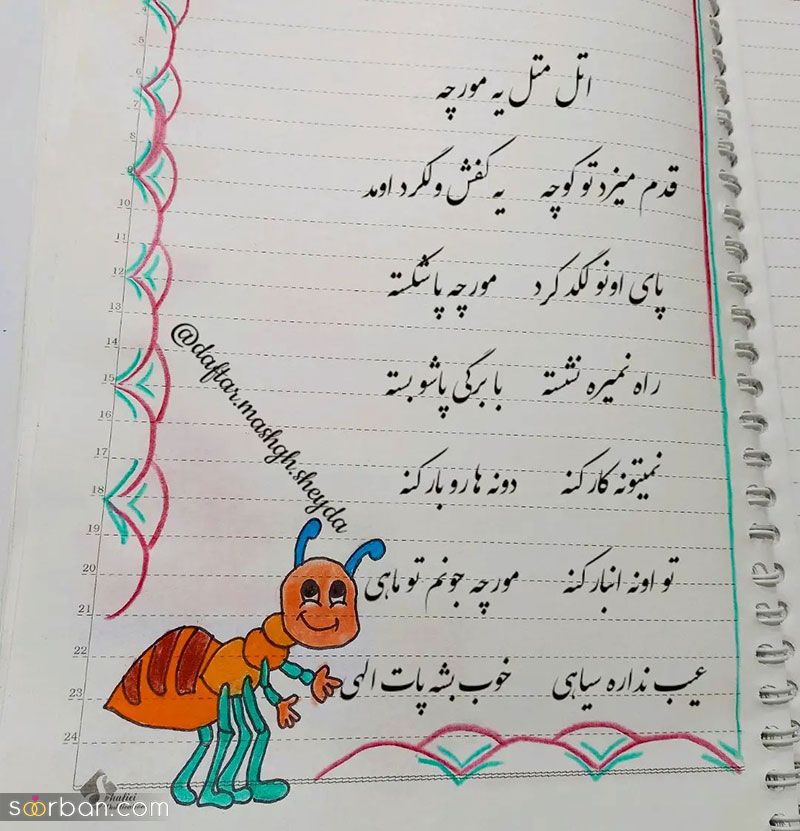 اتل متل یه مورچه
قدم میزد تو کوچه یه کفش ولگرد اومد
پای اونو لگد کرد مورچه پا شکسته
راه نمیره نشسته با برگی پاشو بسته
نمیتونه کار کنه دونه ها رو بار کنه
تو اونه انبار کنه مورچه جونم تو ماهی
عیب نداره سیاهی خوب بشه پات الهی
@daftar.mashgh.sheyda
4
5
6
7
8
9
10
11
12
13
14
15
16
17
18
19
20
21
22
23
24
soorban.com